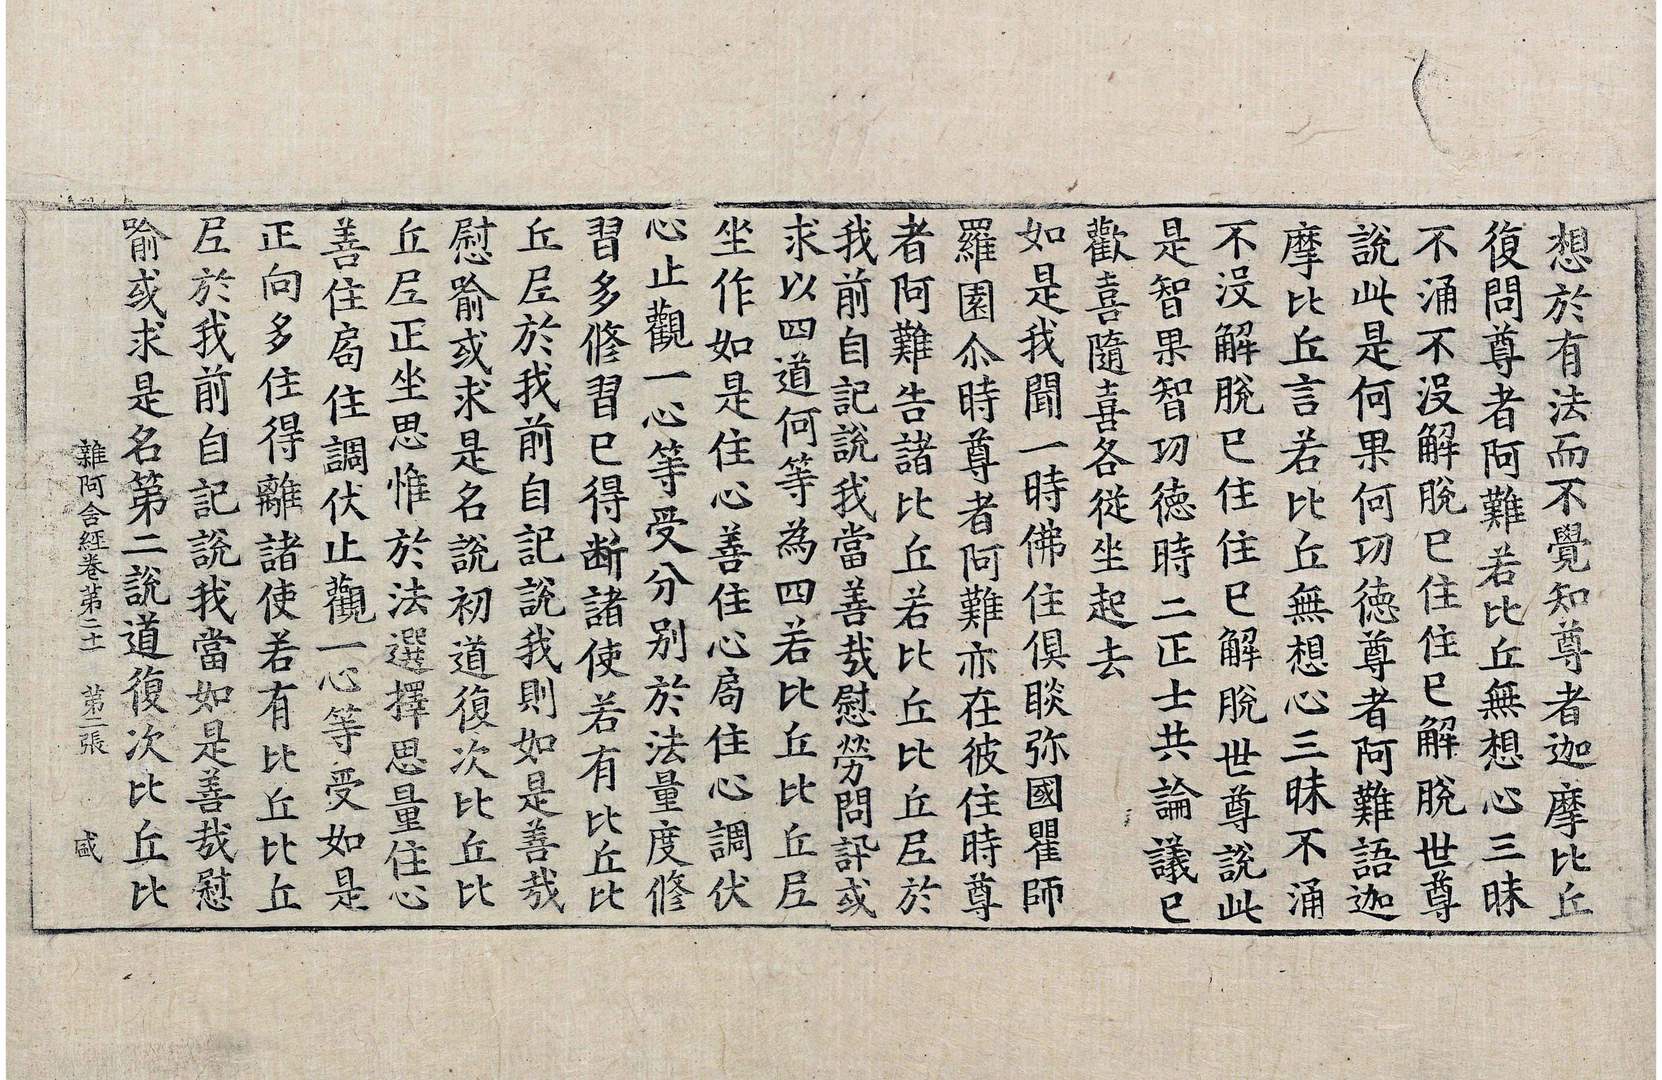 想於有法而不覺知尊者迦摩比丘
復問尊者阿難若比丘無想心三昧
不涌不沒解脫已住住已解脫世尊
說此是何果何功德尊者阿難語迦
摩比丘言若比丘無想心三昧不涌
不沒解脫已住住已解脫世尊說此
是智果智功德時二正士共論議已
歡喜隨喜各從坐起去
如是我聞一時佛住俱睒弥國瞿師
羅園尒時尊者阿難亦在彼住時尊
者阿難告諸比丘若比丘比丘𡰱於
我前自記說我當善哉慰勞問訊或
求以四道何等為四若比丘比丘𡰱
坐作如是住心善住心局住心調伏
心止觀一心等受分別於法量度修
習多修習已得断諸使若有比丘比
丘𡰱於我前自記說我則如是善哉
慰喻或求是名說初道復次比丘比
丘𡰱正坐思惟於法選擇思量住心
善住局住調伏止觀一心等受如是
正向多住得離諸使若有比丘比丘
𡰱於我前自記說我當如是善哉慰
喻或求是名第二說道復次比丘比
雜阿含經卷第二十 第二張 盛